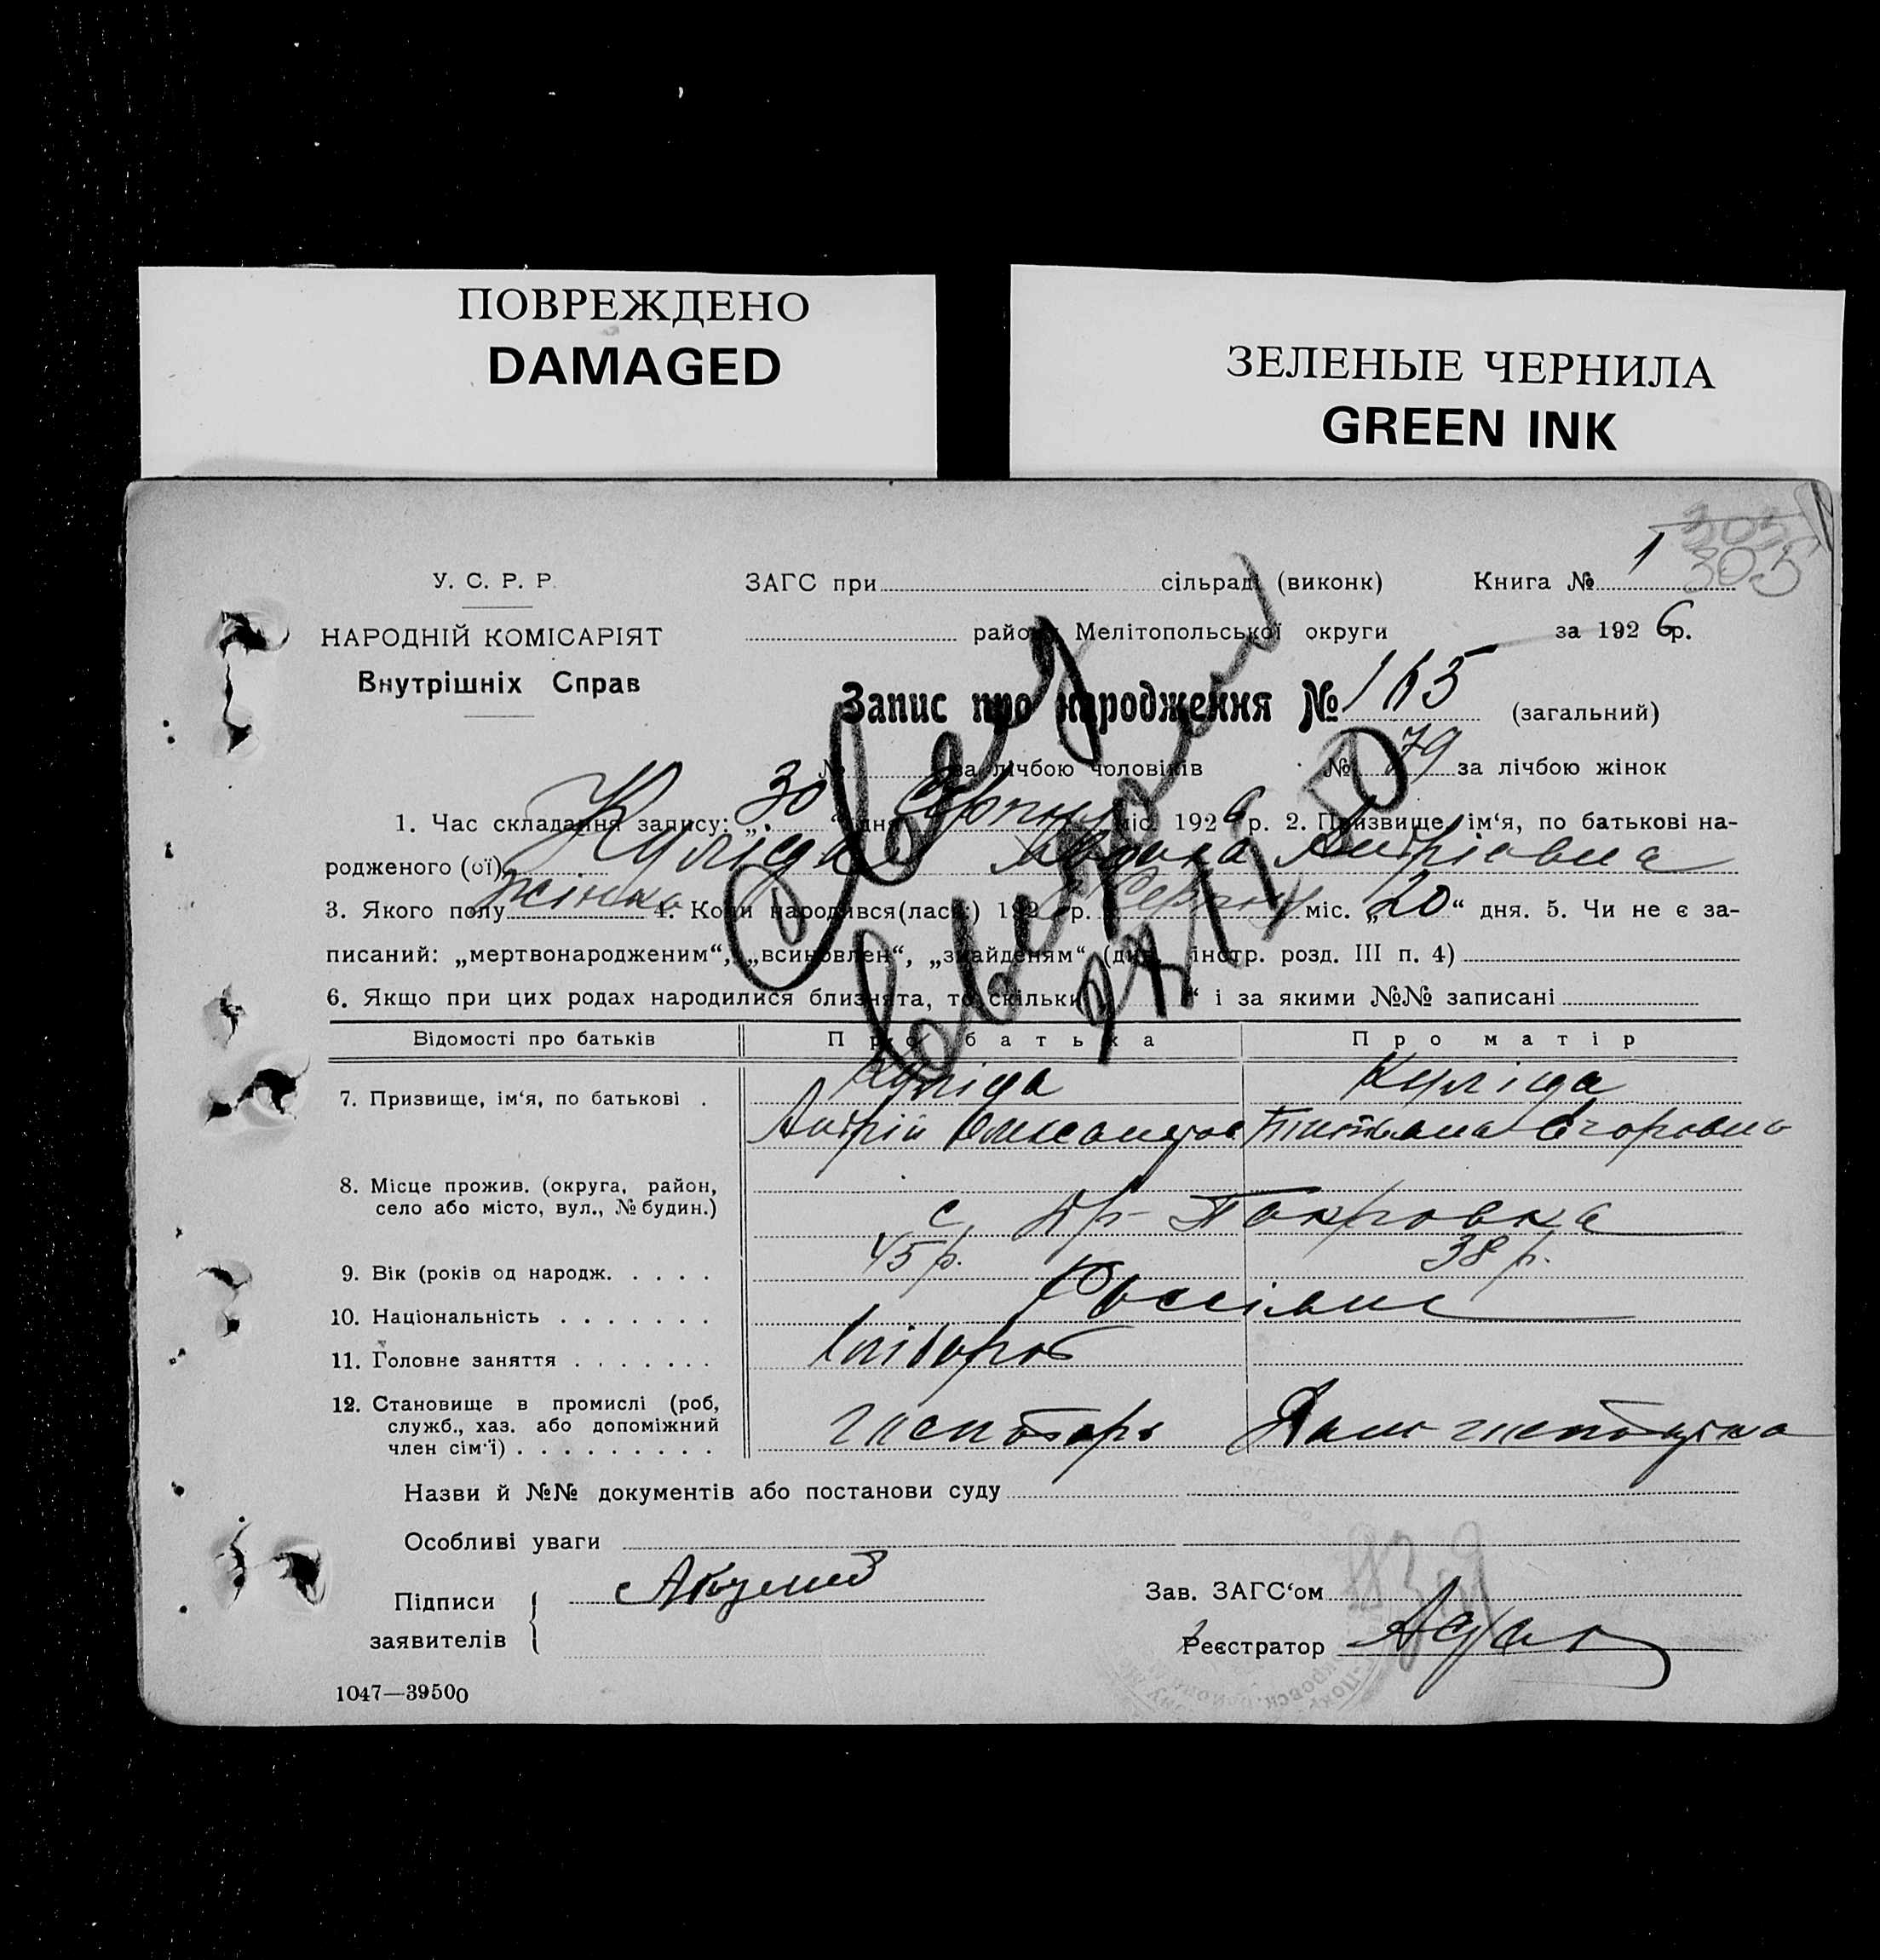 ПОВРЕЖДЕНО
DAMAGED
ЗЕЛЕНЫЕ ЧЕРНИЛА
GREEN INK
305
305
У. С. Р. Р.
ЗАГС при сільради (виконк) Книга № 1
НАРОДНІЙ КОМІСАРІЯТ
району Мелітопольської округи за 1926 р.
Внутрішніх Справ
Запис про народження № 165 (загальний)
№ за лічбою чоловіків № 79 за лічбою жінок
1. Час складання запису: „30“ дня Серпня міс. 1926 р. 2. Призвище, ім‘я, по батькові на-
родженого (ої) Куліда Андріевна
3. Якого полу жінка 4. Коли народився(лась) 192 р. Серпня міс. „20“ дня. 5. Чи не є за-
писаний: „мертвонародженим“, „всиновлен“, „знайденям“ (див. інстр. розд. III п. 4)
6. Якщо при цих родах народилися близнята, то скільки “ і за якими №№ записані
Відомості про батьків Про батька Про матір
7. Призвище, ім‘я, по батькові . Куліда Куліда
Андрій Титьяна Егоровна
8. Місце прожив. (округа, район,
село або місто, вул., № будин.) с. Покровка
9. Вік (років од народж. . . . . 45 р. 38 р.
10. Національність . . . . . . .
11. Головне заняття . . . . . . . Хлібороб
12. Становище в промислі (роб,
служб., хаз. або допоміжний
член сім‘ї) . . . . . . . . .
Назви й №№ документів або постанови суду
Особливі уваги
Підписи
заявителів
Зав. ЗАГС‘ом
Реєстратор
1047—39500